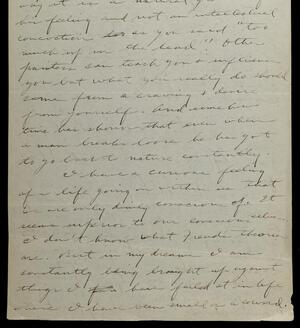 way it is a natural
feeling and not an intellectual
conviction as you said "too
much up in the head." Other
painters can teach you & influence
you but what you really do should
come from a craving & desire
from yourself. And somehow
time has shown that even when
a man breaks loose he has got
to go back to nature constantly.
I have a curious feeling
of a life going on within me that
we are only dimly conscious of. It
seems superior to our conscious selves.
I don't know what Freuds theories
are. But in my dreams I am
constantly being brought up against
things I have failed at in life
where I have been small or a coward.